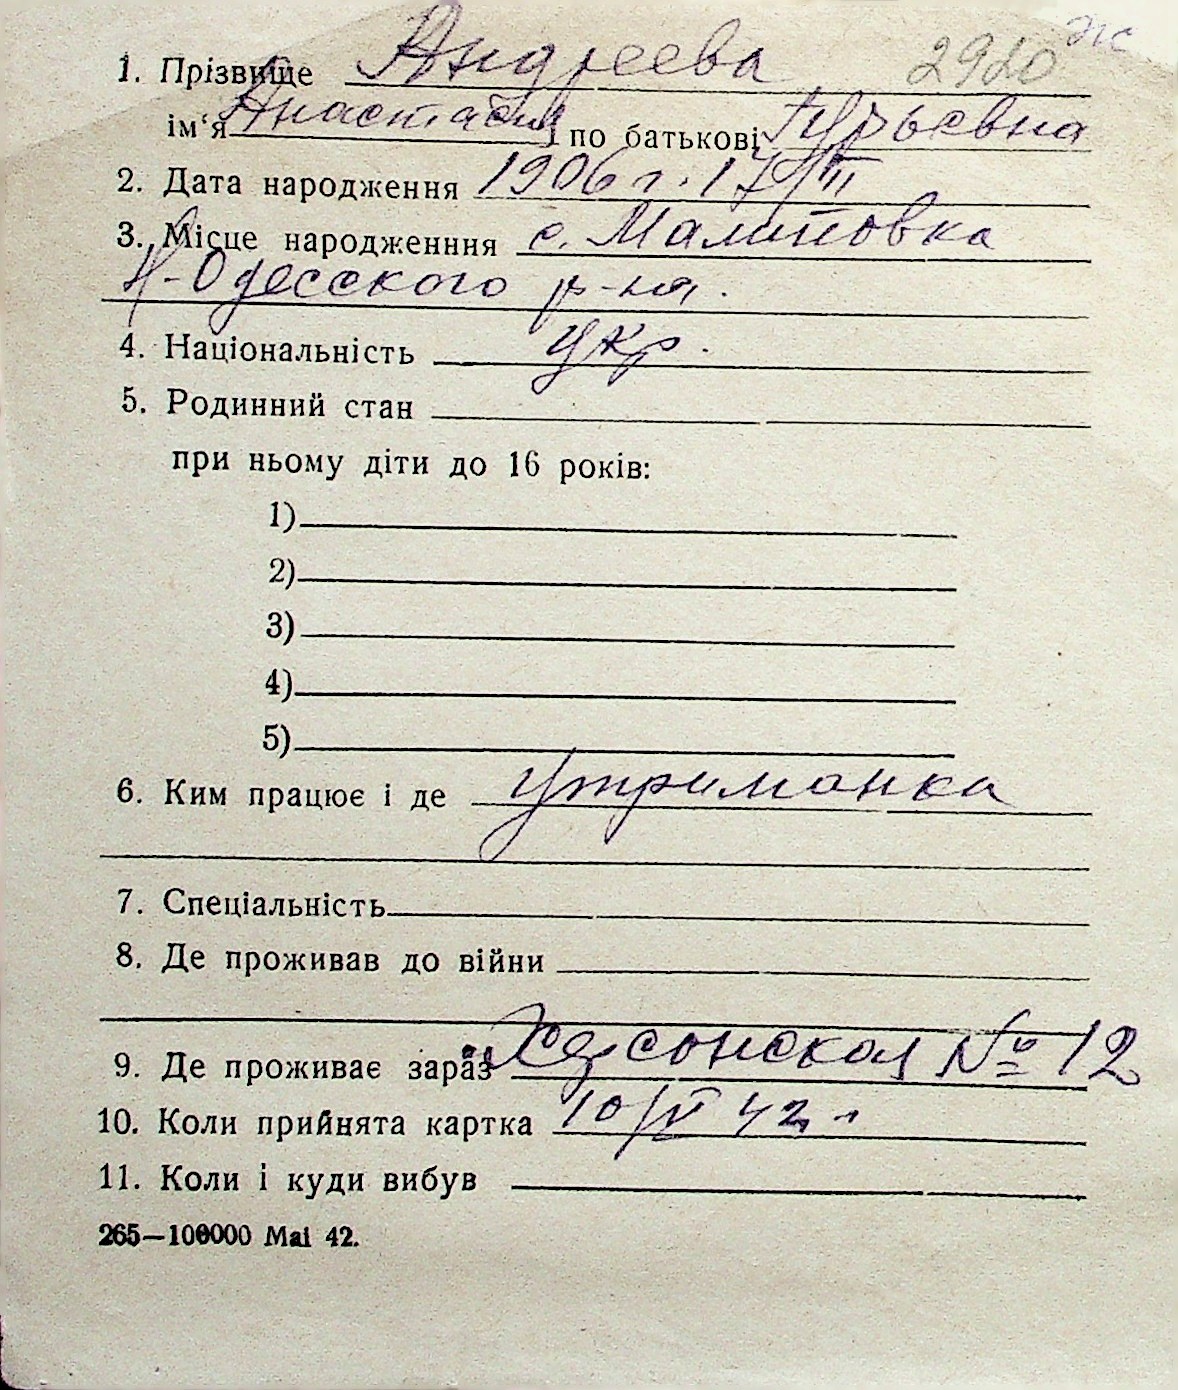 2920 ж
1. Прізвище Андреева
ім‘я Анастасия по батькові Юрьевна
2. Дата народження 1906 г. 17/III
3. Місце народженння с. Малиновка
Н-Одесского р-на.
4. Національність Укр.
5. Родинний стан
при ньому діти до 16 років:
1)
2)
3)
4)
5)
6. Ким працює і де Утриманка
7. Спеціальність
8. Де проживав до війни
9. Де проживає зараз Херсонская № 12
10. Коли прийнята картка 10/VI 42 г
11. Коли і куди вибув
265—100000 Mai 42.